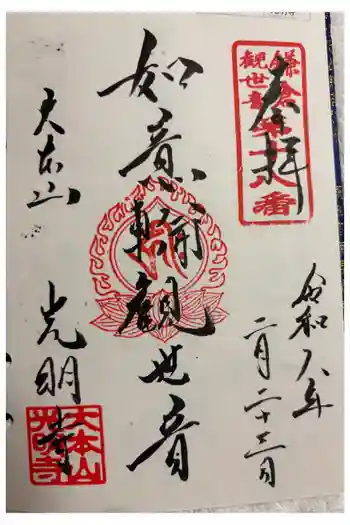 奉拝
鎌倉
観世音
第十八番
令和八年
二月二十三日
如意輪観世音
天照山
光明寺
大本山
光明寺